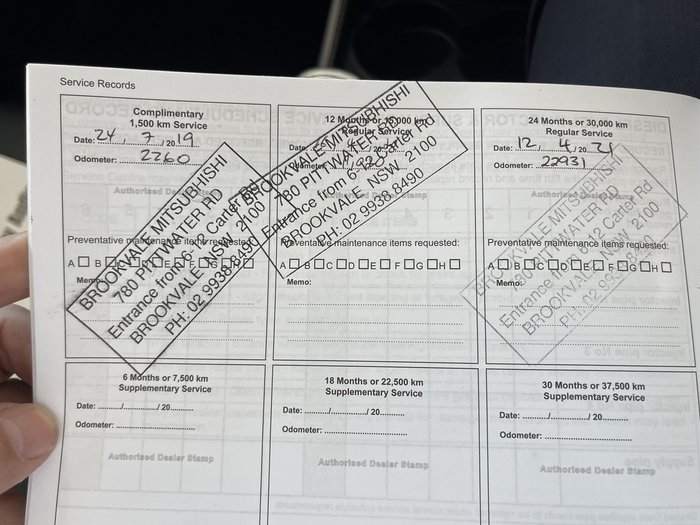 Service Records
Complimentary
1,500 km Service
Date: 24 / 7 / 2019
Odometer: 2260
Authorised
Preventative maintenance items requested:
A B C D E F G H
Memo:
BROOKVALE MITSUBHISHI
780 PITTWATER RD
Entrance from 6-12 Carter Rd
BROOKVALE NSW 2100
PH: 02 9938 8490
12 Months or 15,000 km
Regular Service
Date:
Odometer:
Preventative maintenance items requested:
A B C D E F G H
Memo:
BROOKVALE MITSUBHISHI
780 PITTWATER RD
Entrance from 6-12 Carter Rd
BROOKVALE NSW 2100
PH: 02 9938 8490
24 Months or 30,000 km
Regular Service
Date: 12 / 4 / 2021
Odometer: 22931
Authorised Stamp
Preventative maintenance items requested:
A B C D E F G H
Memo:
BROOKVALE MITSUBHISHI
780 PITTWATER RD
Entrance from 6-12 Carter Rd
BROOKVALE NSW 2100
PH: 02 9938 8490
6 Months or 7,500 km
Supplementary Service
Date: ........./............./ 20.........
Odometer: ...............................
Authorised Dealer Stamp
18 Months or 22,500 km
Supplementary Service
Date: ........./............./ 20.........
Odometer: ...............................
Authorised Dealer Stamp
30 Months or 37,500 km
Supplementary Service
Date: ........./............./ 20.........
Odometer: ...............................
Authorised Dealer Stamp